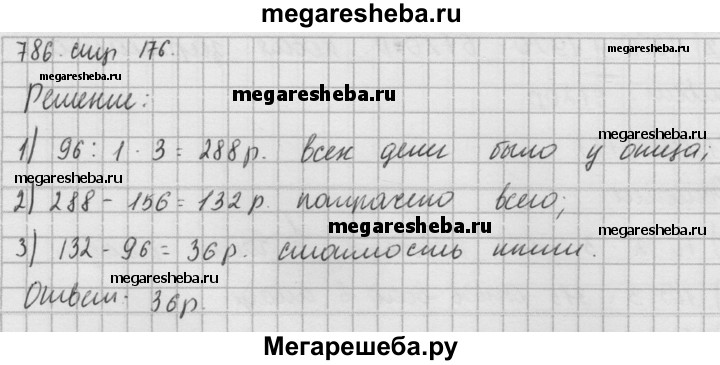 megaresheba.ru
786. стр 176.
megaresheba.ru
megaresheba.ru
Решение:
megaresheba.ru
megaresheba.ru
1) 96 : 1 · 3 = 288 р. всех денег было у отца;
megaresheba.ru
2) 288 - 156 = 132 р. потрачено всего;
megaresheba.ru
3) 132 - 96 = 36 р. стоимость книги.
megaresheba.ru
megaresheba.ru
Ответ: 36 р.
megaresheba.ru
Мегарешеба.ру